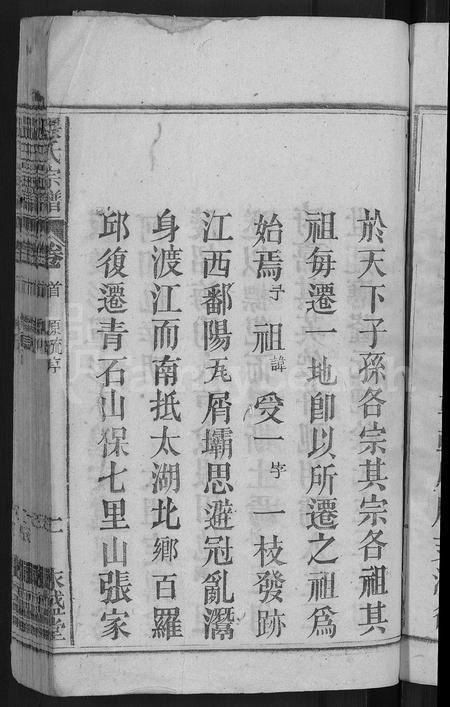 於天下子孫各宗其宗各祖其
祖每遷一地卽以所遷之祖為
始焉予祖諱受一字一枝發跡
江西鄱陽瓦屑壩思避冦亂濳
身渡江而南抵太湖北鄉百羅
邱復遷青石山保七里山張家
氏宗譜 卷首 原流序 二